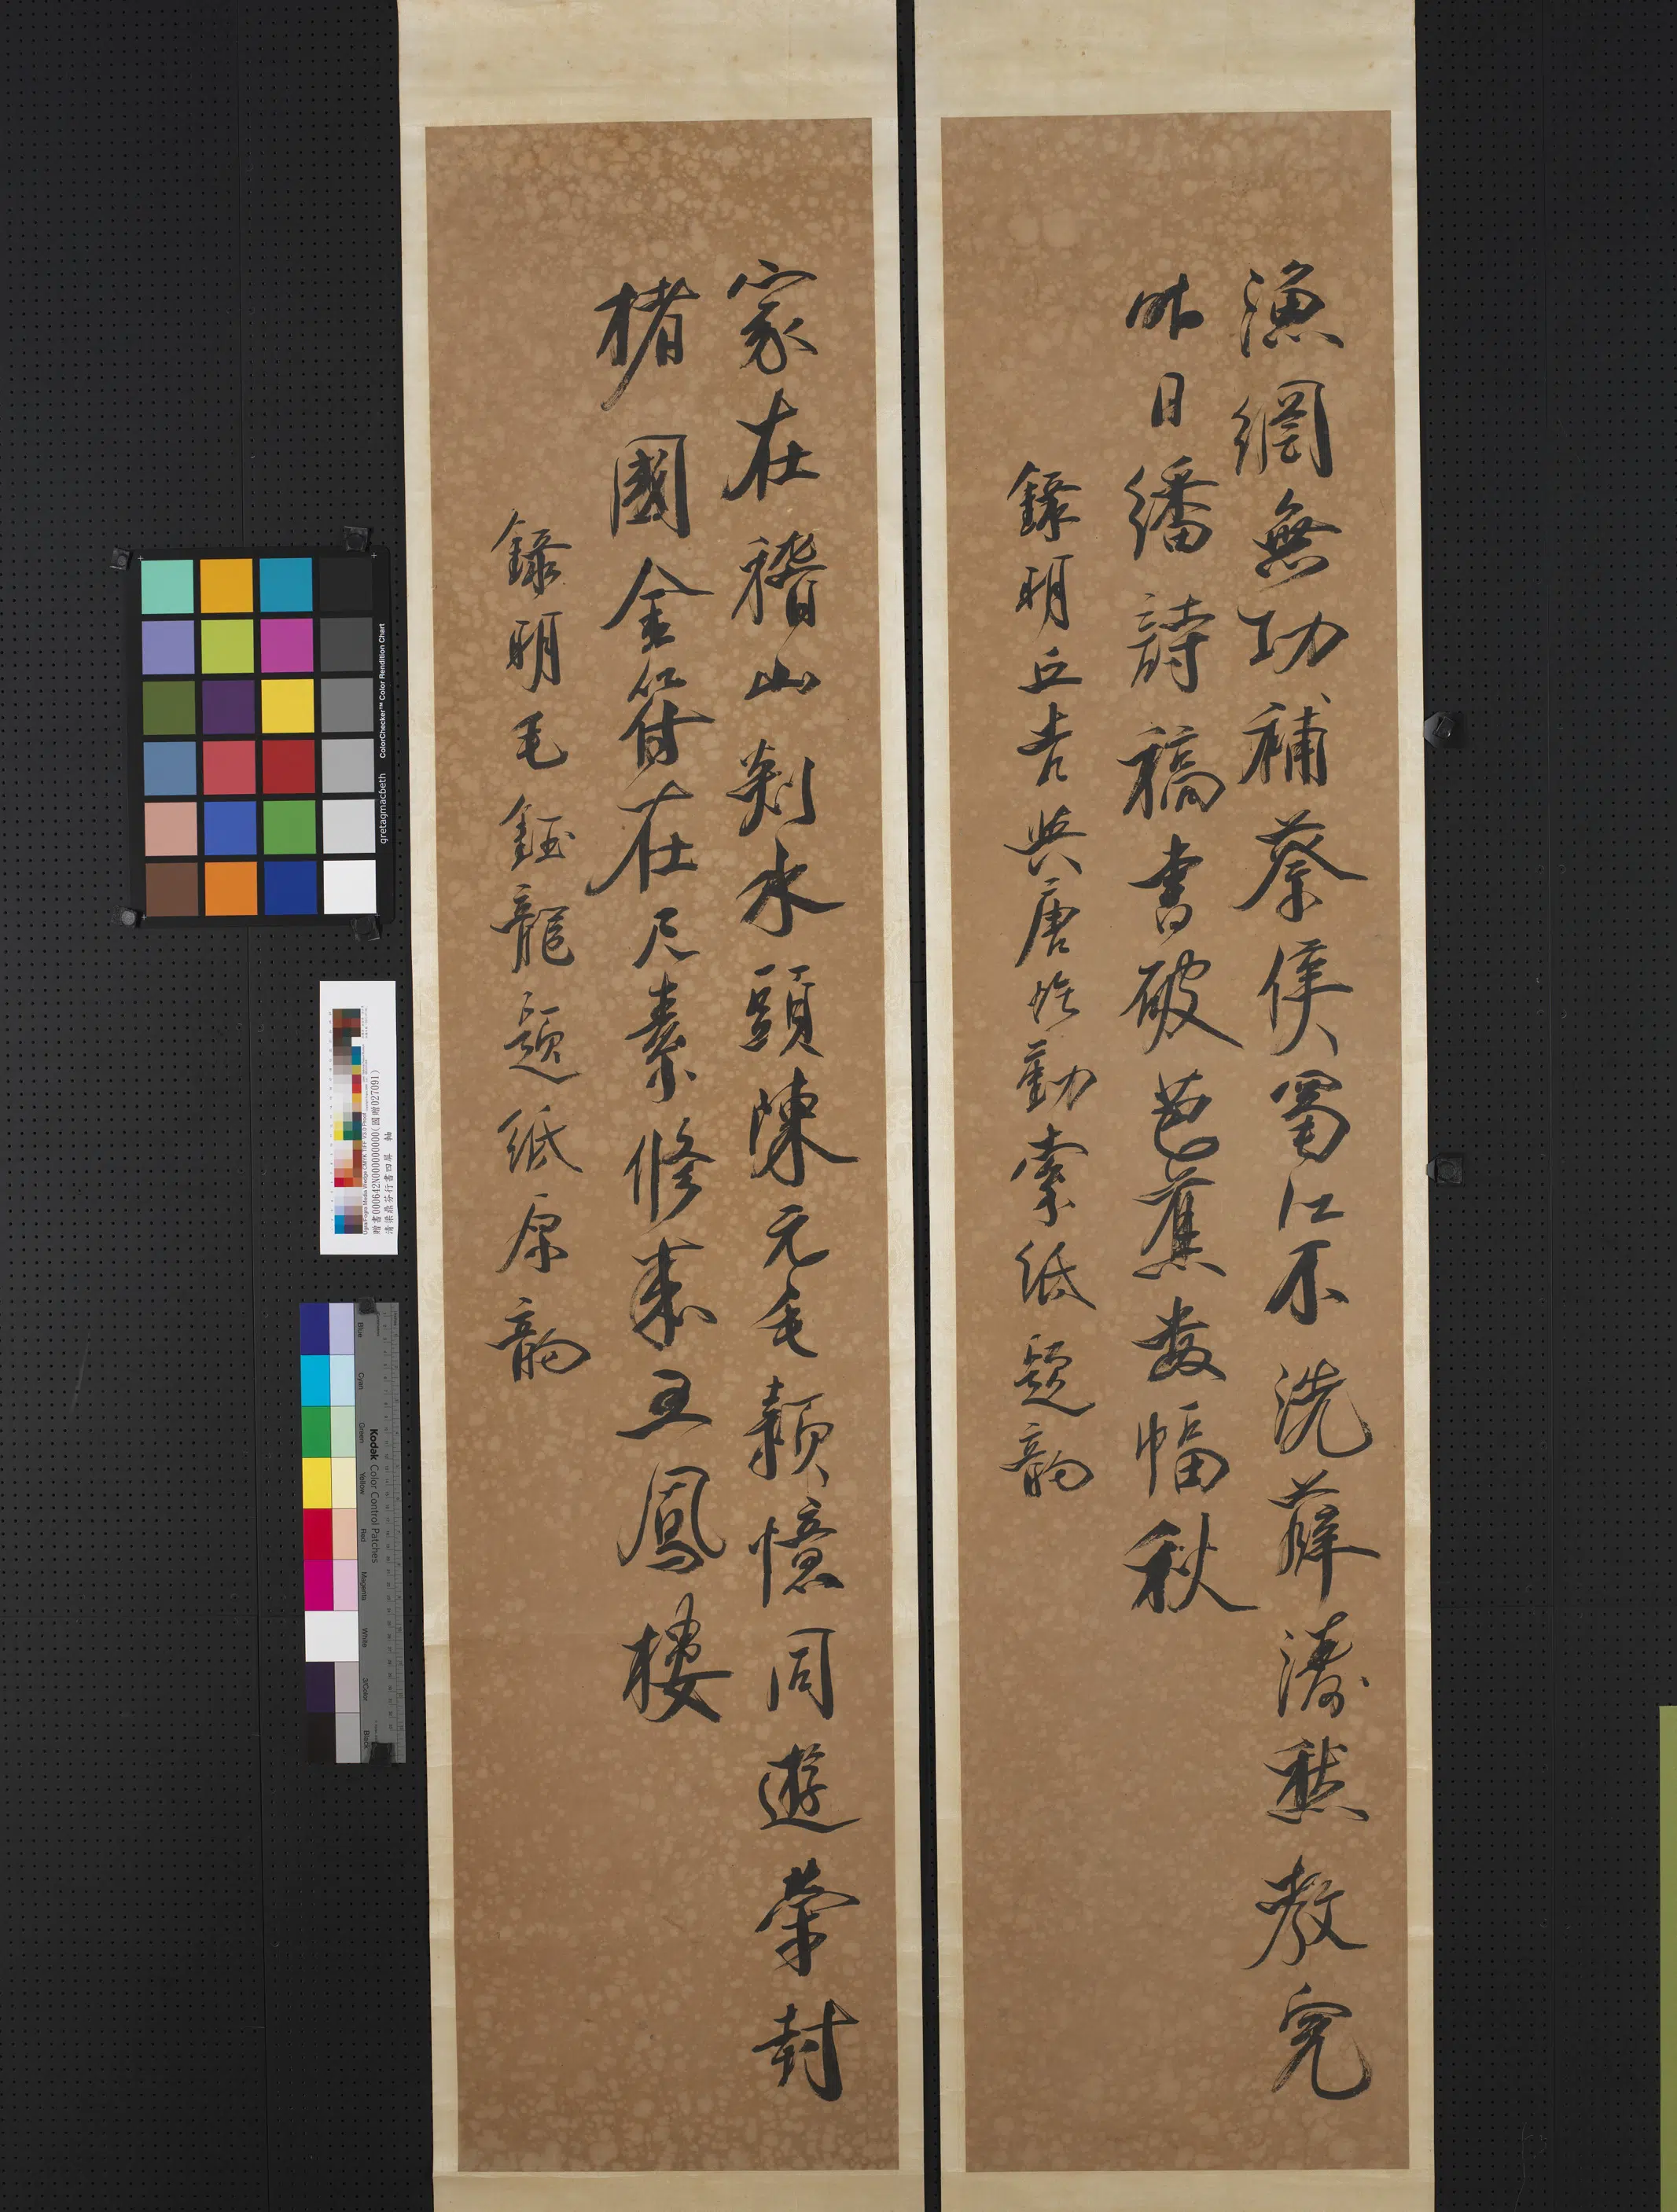 漁網無功補蔡侯蜀江不洗薛濤愁教兒
昨日繙詩稿書破芭蕉數幅秋
錄明丘吉與唐惟勤索紙題韻
家在稽山剡水頭陳元毛穎憶同遊榮封
楮國金符在尺素修來五鳳樓
錄明毛鈺龍題紙原韻
ColorChecker™ Color Rendition Chart
gretagmacbeth
Kodak Color Control Patches
Blue
Cyan
Green
Yellow
Red
Magenta
White
3/Color
Black